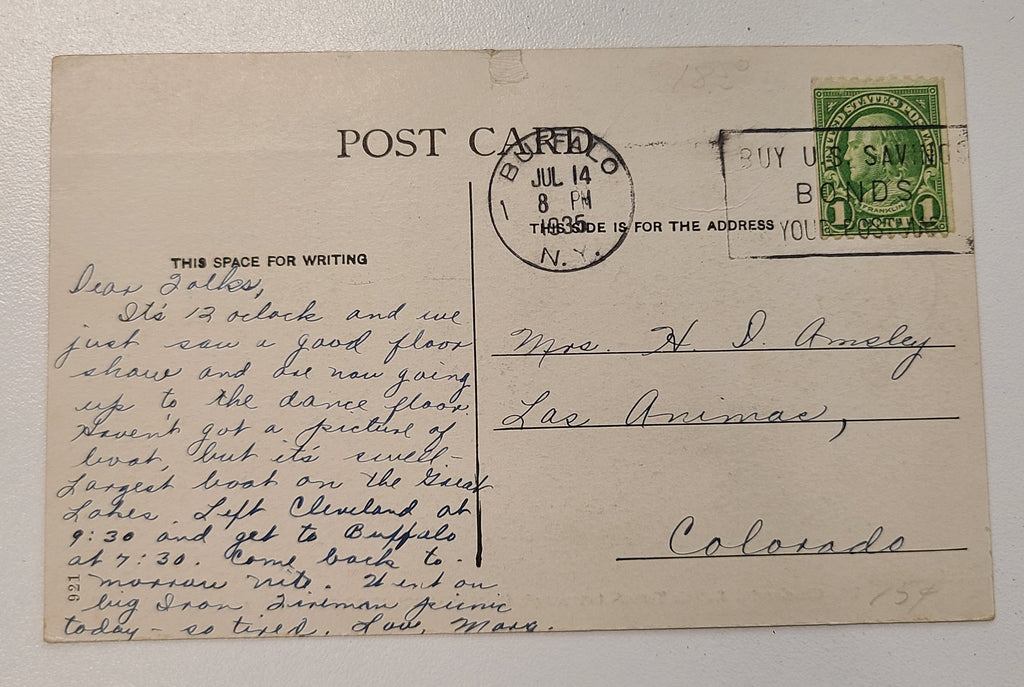 POST CARD
BUFFALO
JUL 14
1 8 PM
1935
N.Y.
BUY U.S. SAVING
BONDS
YOUR POST
UNITED STATES POSTAGE
FRANKLIN
1 CENT 1
THIS SIDE IS FOR THE ADDRESS
THIS SPACE FOR WRITING
Dear Folks,
It's 12 oclock and we
just saw a good floor
show and are now going
up to the dance floor.
Haven't got a picture of
boat, but it's swell -
Largest boat on the Great
Lakes. Left Cleveland at
9:30 and get to Buffalo
at 7:30. Come back to -
morrow nite. Went on
big Iron Fireman picnic
today - so tired. Love, Marg.
Mrs. H. D. Amsley
Las Animas,
Colorado
921
15¢